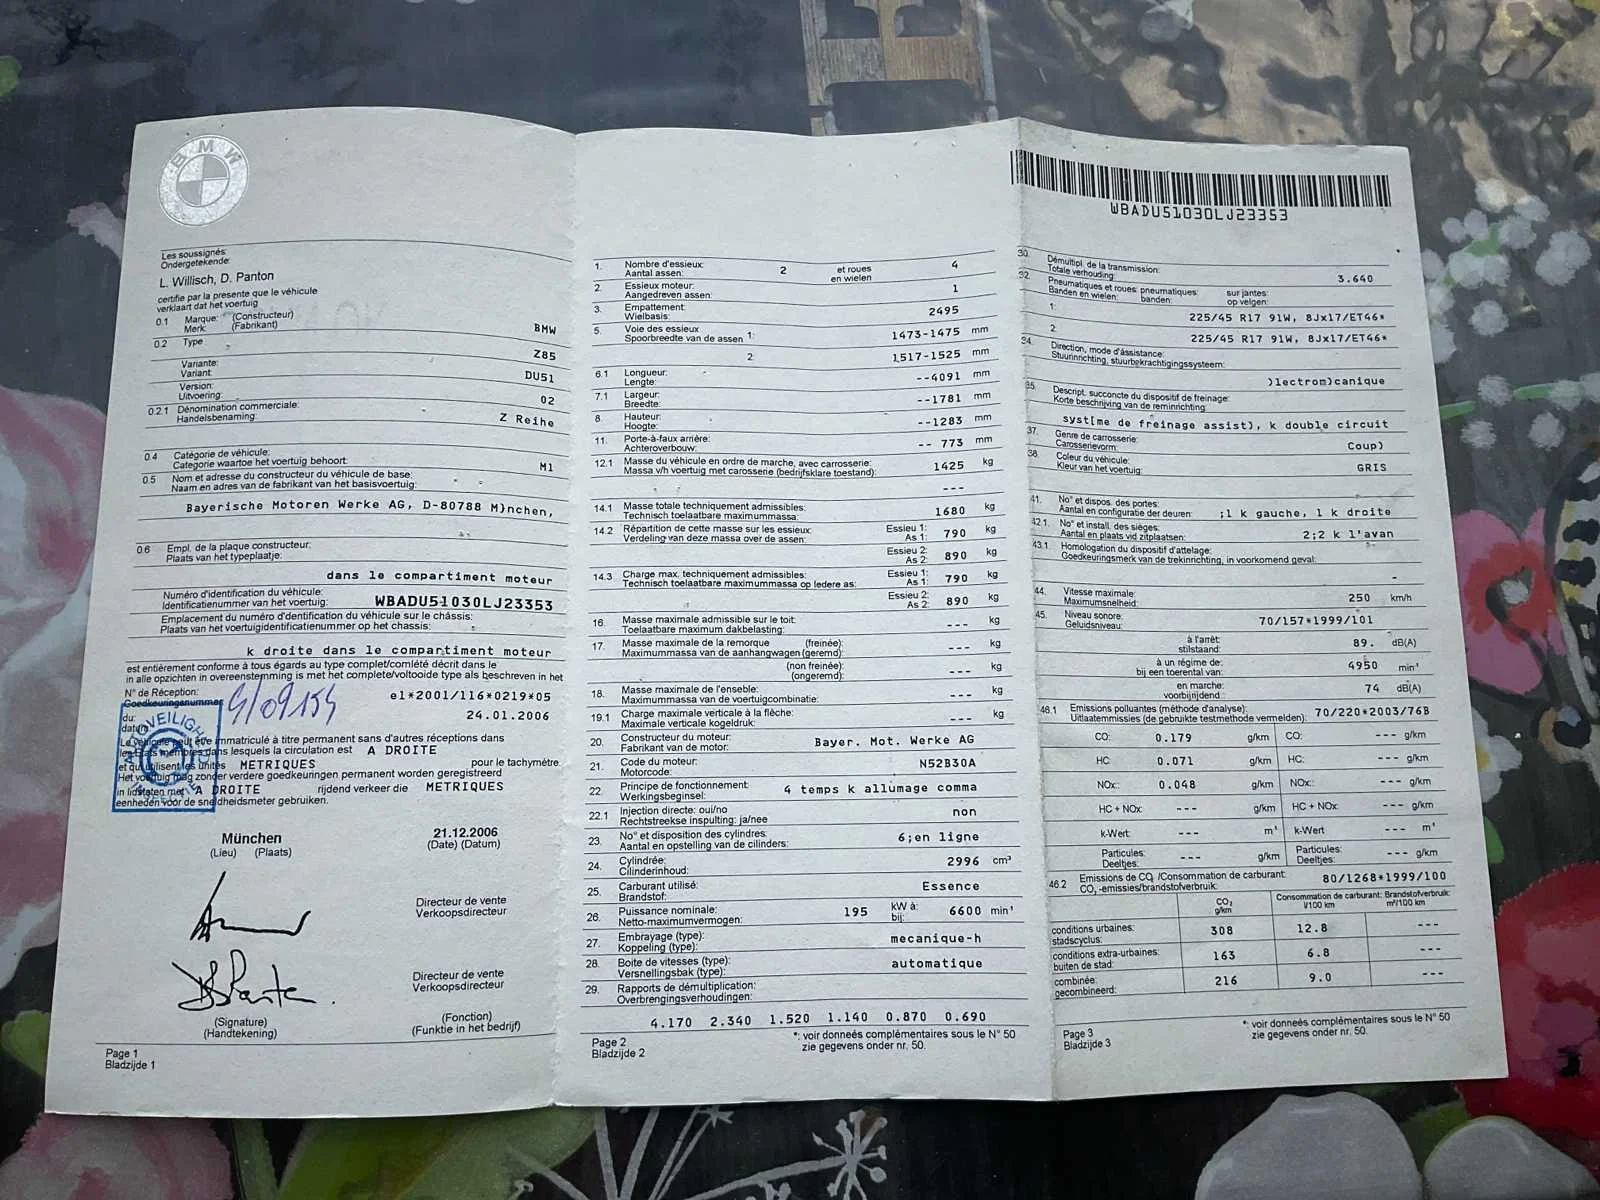 BMW
Les soussignés:
Ondergetekende:
L. Willisch, D. Panton
certifie par la presente que le véhicule
verklaart dat het voertuig
0.1 Marque: (Constructeur)
Merk: (Fabrikant)
BMW
0.2 Type
Z85
Variante:
Variant:
DU51
Version:
Uitvoering:
02
0.2.1 Dénomination commerciale:
Handelsbenaming:
Z Reihe
0.4 Catégorie de véhicule:
Categorie waartoe het voertuig behoort:
M1
0.5 Nom et adresse du constructeur du véhicule de base:
Naam en adres van de fabrikant van het basisvoertuig:
Bayerische Motoren Werke AG, D-80788 M)nchen,
0.6 Empl. de la plaque constructeur:
Plaats van het typeplaatje:
dans le compartiment moteur
Numéro d'identification du véhicule:
Identificatienummer van het voertuig:
WBADU51030LJ23353
Emplacement du numéro d'dentification du véhicule sur le châssis:
Plaats van het voertuigidentificatienummer op het chassis:
k droite dans le compartiment moteur
est entièrement conforme à tous égards au type complet/comlété décrit dans le
in alle opzichten in overeenstemming is met het complete/voltooide type als beschreven in het
N° de Réception:
Goedkeuringsnummer
e1*2001/116*0219*05
du:
datum
24.01.2006
Le véhicule peut être immatriculé à titre permanent sans d'autres réceptions dans
les Etats membres dans lesquels la circulation est A DROITE
et qu utilisent les unités METRIQUES pour le tachymétre.
Het voertuig mag zonder verdere goedkeuringen permanent worden geregistreerd
in lidstaten met A DROITE rijdend verkeer die METRIQUES
eenheden voor de snelheidsmeter gebruiken.
München
(Lieu) (Plaats)
21.12.2006
(Date) (Datum)
Directeur de vente
Verkoopsdirecteur
Directeur de vente
Verkoopsdirecteur
(Signature)
(Handtekening)
(Fonction)
(Funktie in het bedrijf)
Page 1
Bladzijde 1
1. Nombre d'essieux:
Aantal assen:
2 et roues
en wielen
4
2. Essieux moteur:
Aangedreven assen:
1
3. Empattement:
Wielbasis:
2495
5. Voie des essieux
Spoorbreedte van de assen 1:
1473-1475 mm
2: 1517-1525 mm
6.1 Longueur:
Lengte:
--4091 mm
7.1 Largeur:
Breedte:
--1781 mm
8. Hauteur:
Hoogte:
--1283 mm
11. Porte-à-faux arrière:
Achteroverbouw:
-- 773 mm
12.1 Masse du véhicule en ordre de marche, avec carrosserie:
Massa v/h voertuig met carosserie (bedrijfsklare toestand):
1425 kg
---
14.1 Masse totale techniquement admissibles:
Technisch toelaatbare maximummassa:
1680 kg
14.2 Répartition de cette masse sur les essieux:
Verdeling van deze massa over de assen:
Essieu 1:
As 1:
790 kg
Essieu 2:
As 2:
890 kg
14.3 Charge max. techniquement admissibles:
Technisch toelaatbare maximummassa op Iedere as:
Essieu 1:
As 1:
790 kg
Essieu 2:
As 2:
890 kg
16. Masse maximale admissible sur le toit:
Toelaatbare maximum dakbelasting:
--- kg
17. Masse maximale de la remorque (freinée):
Maximummassa van de aanhangwagen (geremd):
--- kg
(non freinée):
(ongeremd):
--- kg
18. Masse maximale de l'enseble:
Maximummassa van de voertuigcombinatie:
--- kg
19.1 Charge maximale verticale à la flêche:
Maximale verticale kogeldruk:
--- kg
20. Constructeur du moteur:
Fabrikant van de motor:
Bayer. Mot. Werke AG
21. Code du moteur:
Motorcode:
N52B30A
22. Principe de fonctionnement:
Werkingsbeginsel:
4 temps k allumage comma
22.1 Injection directe: oui/no
Rechtstreekse inspulting: ja/nee
non
23. No° et disposition des cylindres:
Aantal en opstelling van de cilinders:
6;en ligne
24. Cylindrée:
Cilinderinhoud:
2996 cm³
25. Carburant utilisé:
Brandstof:
Essence
26. Puissance nominale:
Netto-maximumvermogen:
195 kW à:
bij:
6600 min¹
27. Embrayage (type):
Koppeling (type):
mecanique-h
28. Boite de vitesses (type):
Versnellingsbak (type):
automatique
29. Rapports de démultiplication:
Overbrengingsverhoudingen:
4.170 2.340 1.520 1.140 0.870 0.690
Page 2
Bladzijde 2
*: voir donneés complémentaires sous le N° 50
zie gegevens onder nr. 50.
WBADU51030LJ23353
30. Démultipl. de la transmission:
Totale verhouding:
3.640
32. Pneumatiques et roues: pneumatiques: sur jantes:
Banden en wielen: banden: op velgen:
1: 225/45 R17 91W, 8Jx17/ET46*
2: 225/45 R17 91W, 8Jx17/ET46*
34. Direction, mode d'ássistance:
Stuurinrichting, stuurbekrachtigingssysteem:
)lectrom)canique
35. Descript. succoncte du dispositif de freinage:
Korte beschrijving van de reminrichting:
syst[me de freinage assist), k double circuit
37. Genre de carrosserie:
Carosserievorm:
Coup)
38. Coleur du véhicule:
Kleur van het voertuig:
GRIS
41. No° et dispos. des portes:
Aantal en configuratie der deuren:
;1 k gauche, 1 k droite
42.1. No° et install. des sièges:
Aantal en plaats vid zitplaatsen:
2;2 k l'avan
43.1 Homologation du dispositif d'attelage:
Goedkeuringsmerk van de trekinrichting, in voorkomend geval:
-
44. Vitesse maximale:
Maximumsnelheid:
250 km/h
45. Niveau sonore:
Geluidsniveau:
70/157*1999/101
à l'arrêt:
stilstaand:
89. dB(A)
à un régime de:
bij een toerental van:
4950 min¹
en marche:
voorbijrijdend:
74 dB(A)
46.1 Emissions polluantes (méthode d'analyse):
Uitlaatemmissies (de gebruikte testmethode vermelden):
70/220*2003/76B
CO: 0.179 g/km CO: --- g/km
HC: 0.071 g/km HC: --- g/km
NOx: 0.048 g/km NOx: --- g/km
HC + NOx: --- g/km HC + NOx: --- g/km
k-Wert: --- m¹ k-Wert --- m¹
Particules:
Deeltjes:
--- g/km
Particules:
Deeltjes:
--- g/km
46.2 Emissions de CO₂ /Consommation de carburant:
CO₂ -emissies/brandstofverbruik:
80/1268*1999/100
CO₂
g/km
Consommation de carburant: Brandstofverbruik:
l/100 km m³/100 km
conditions urbaines:
stadscyclus:
308 12.8 ---
conditions extra-urbaines:
buiten de stad:
163 6.8 ---
combinée:
gecombineerd:
216 9.0 ---
Page 3
Bladzijde 3
*: voir donneés complémentaires sous le N° 50
zie gegevens onder nr. 50.